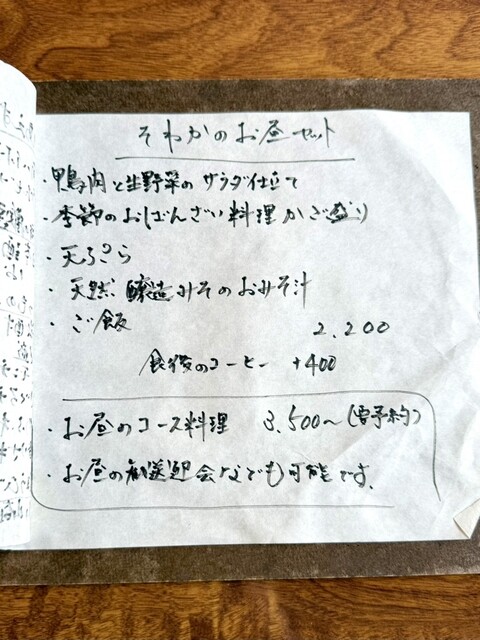 そわかのお昼セット
・鴨肉と生野菜のサラダ仕立て
・季節のおばんざい料理かご盛り
・天ぷら
・天然醸造みそのおみそ汁
・ご飯 2,200
食後のコーヒー +400
・お昼のコース料理 3,500〜(要予約)
・お昼の歓送迎会なども可能です。